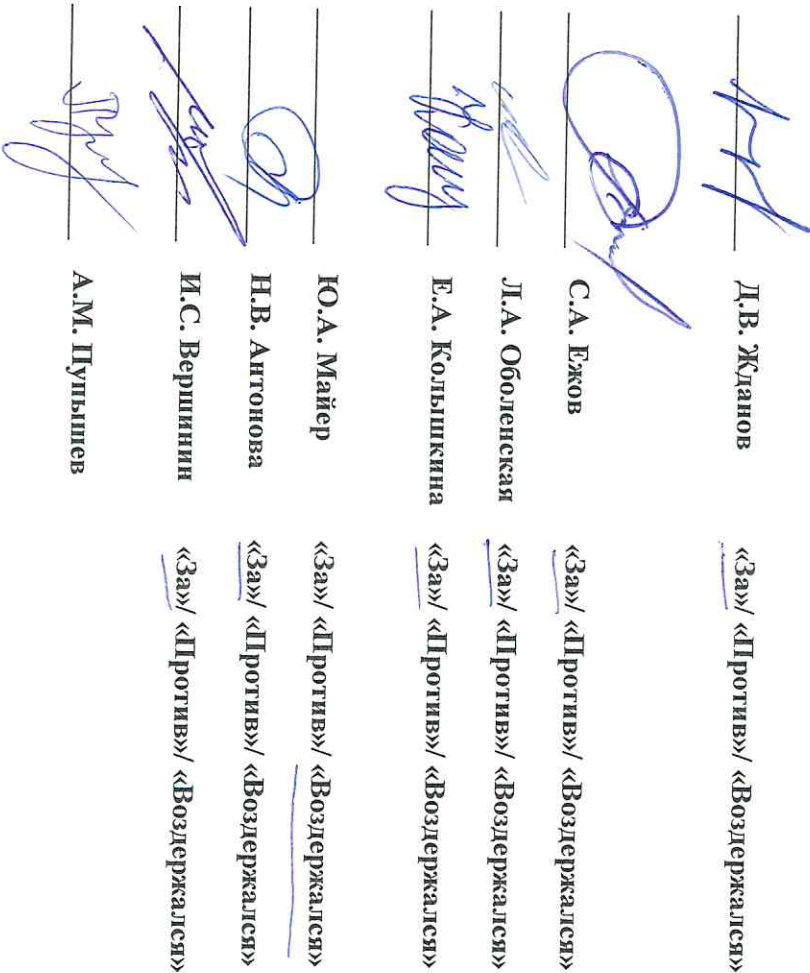 Д.В. Жданов «За»/ «Против»/ «Воздержался»
С.А. Ежов «За»/ «Против»/ «Воздержался»
Л.А. Оболенская «За»/ «Против»/ «Воздержался»
Е.А. Колышкина «За»/ «Против»/ «Воздержался»
Ю.А. Майер «За»/ «Против»/ «Воздержался»
Н.В. Антонова «За»/ «Против»/ «Воздержался»
И.С. Вершинин «За»/ «Против»/ «Воздержался»
А.М. Пупышев